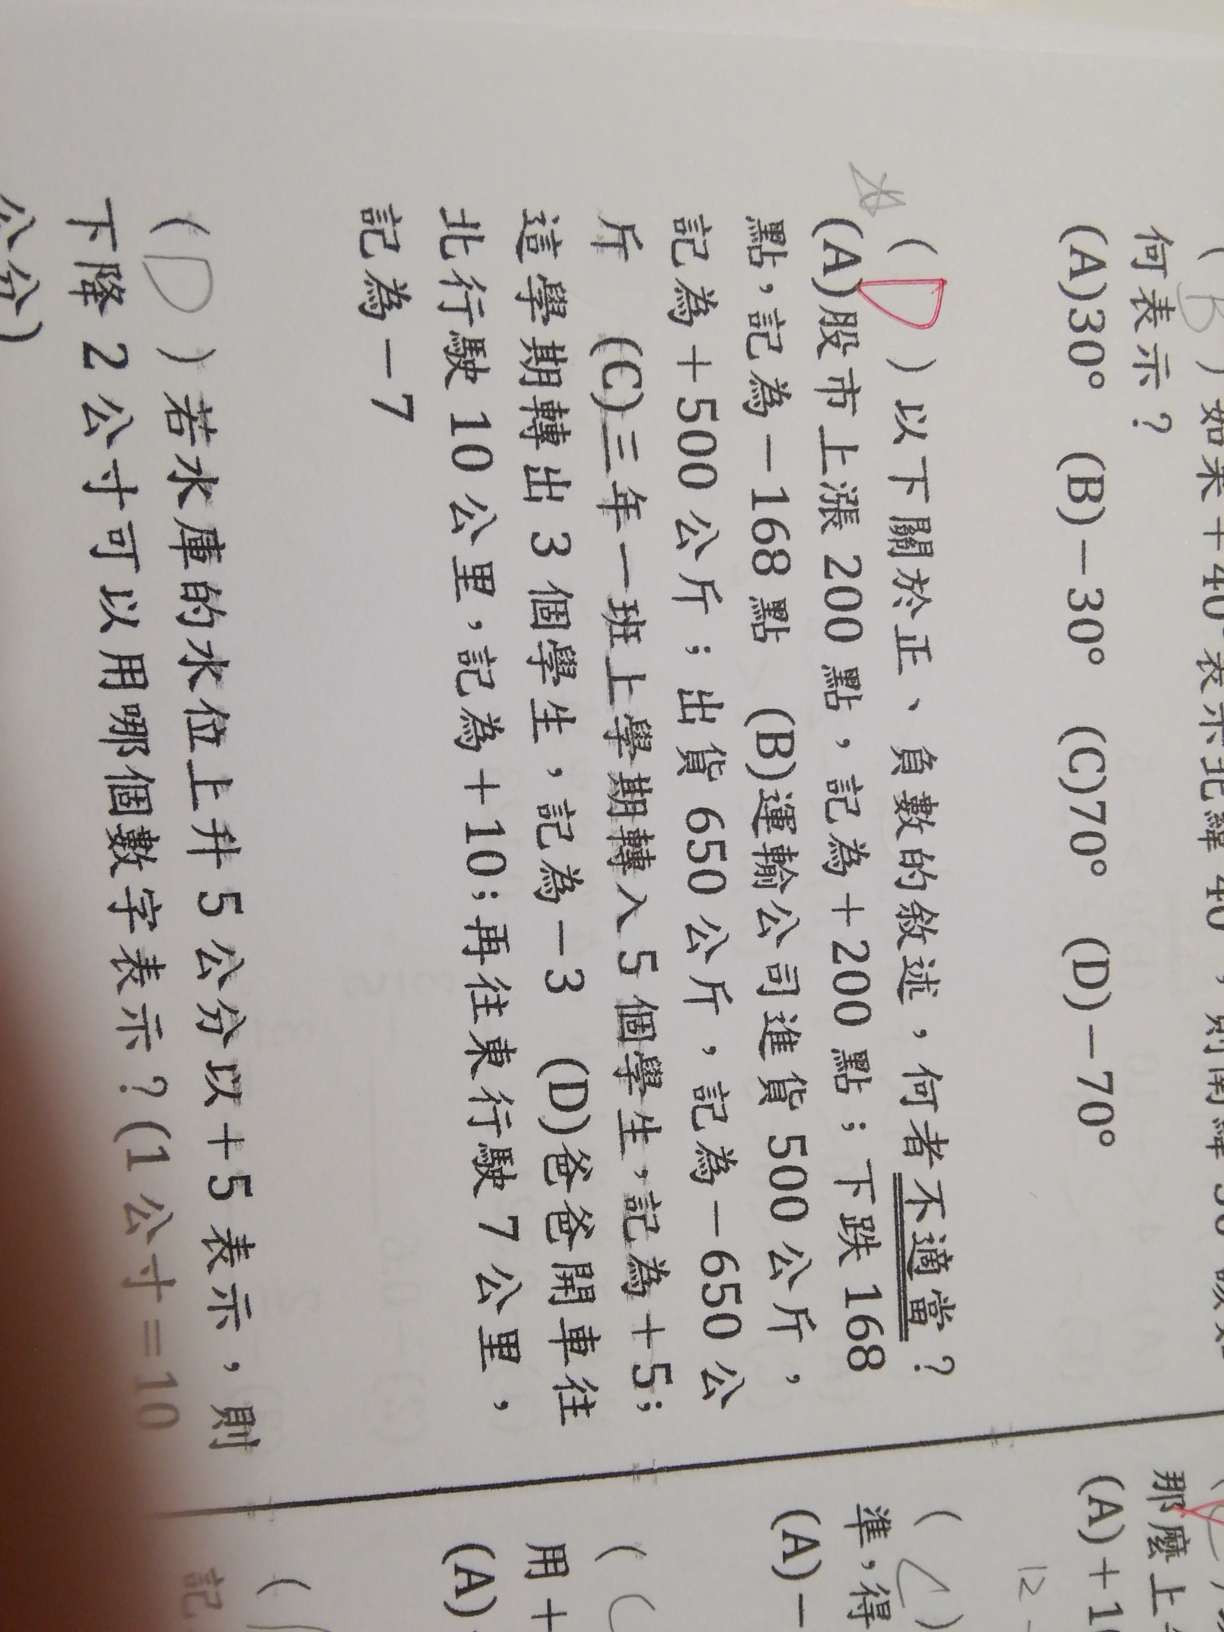 (B)如果+40°表示北緯40°,則南緯30
何表示?
(A)30° (B)-30° (C)70° (D)-70°
(D)以下關於正、負數的敘述,何者不適當?
(A)股市上漲200點,記為+200點;下跌168
點,記為-168點 (B)運輸公司進貨500公斤,
記為+500公斤;出貨650公斤,記為-650公
斤 (C)三年一班上學期轉入5個學生,記為+5;
這學期轉出3個學生,記為-3 (D)爸爸開車往
北行駛10公里,記為+10;再往東行駛7公里,
記為-7
(D)若水庫的水位上升5公分以+5表示,則
下降2公寸可以用哪個數字表示?(1公寸=10
公分)
那麼上
(A)+1
12
(C)
準,得
(A)-
(C
用+
(A)
(
記